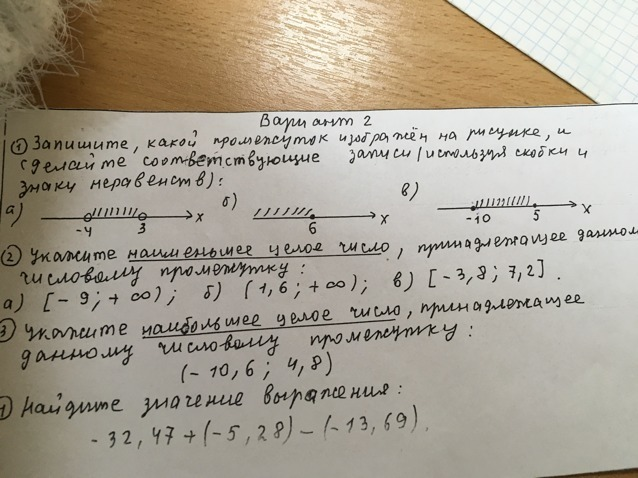 Вариант 2
① Запишите, какой промежуток изображён на рисунке, и
сделайте соответствующие записи (используя скобки и
знаки неравенств):
а) -4 3 x б) 6 x в) -10 5 x
② Укажите наименьшее целое число, принадлежащее данному
числовому промежутку:
а) [-9; +∞); б) (1,6; +∞); в) [-3,8; 7,2].
③ Укажите наибольшее целое число, принадлежащее
данному числовому промежутку:
(-10,6; 4,8)
④ Найдите значение выражения:
-32,47 + (-5,28) - (-13,69).